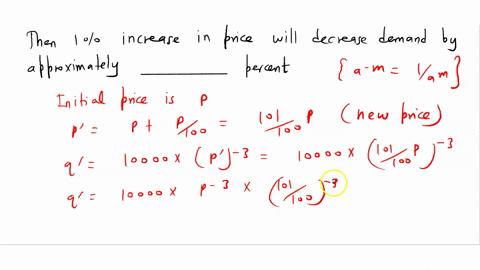 Then 1% increase in price will decrease demand by
approximately ________ percent { a-m = 1/am }
Initial price is p
p' = p + p/100 = 101/100 p (new price)
q' = 10000 × (p')^-3 = 10000 × (101/100 p)^-3
q' = 10000 × p-3 × (101/100)^-3